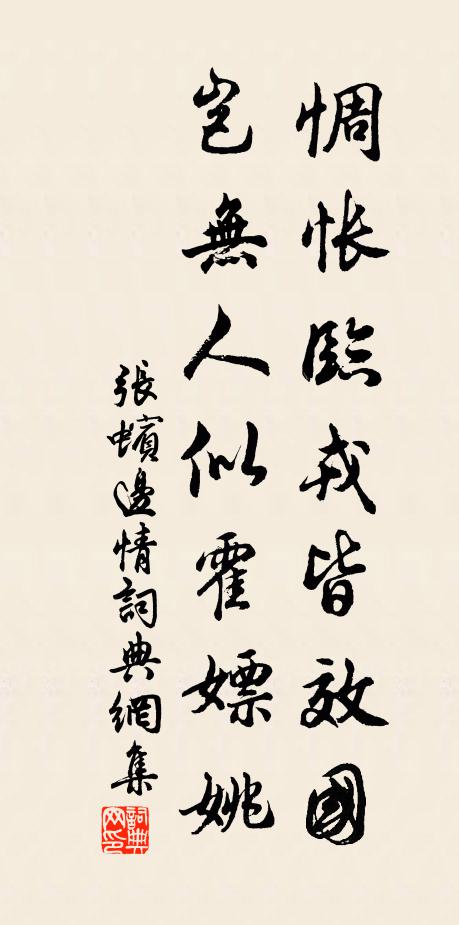 惆悵臨戎皆效國
豈無人似霍嫖姚
張蠙邊情詞典網集
詞典網印